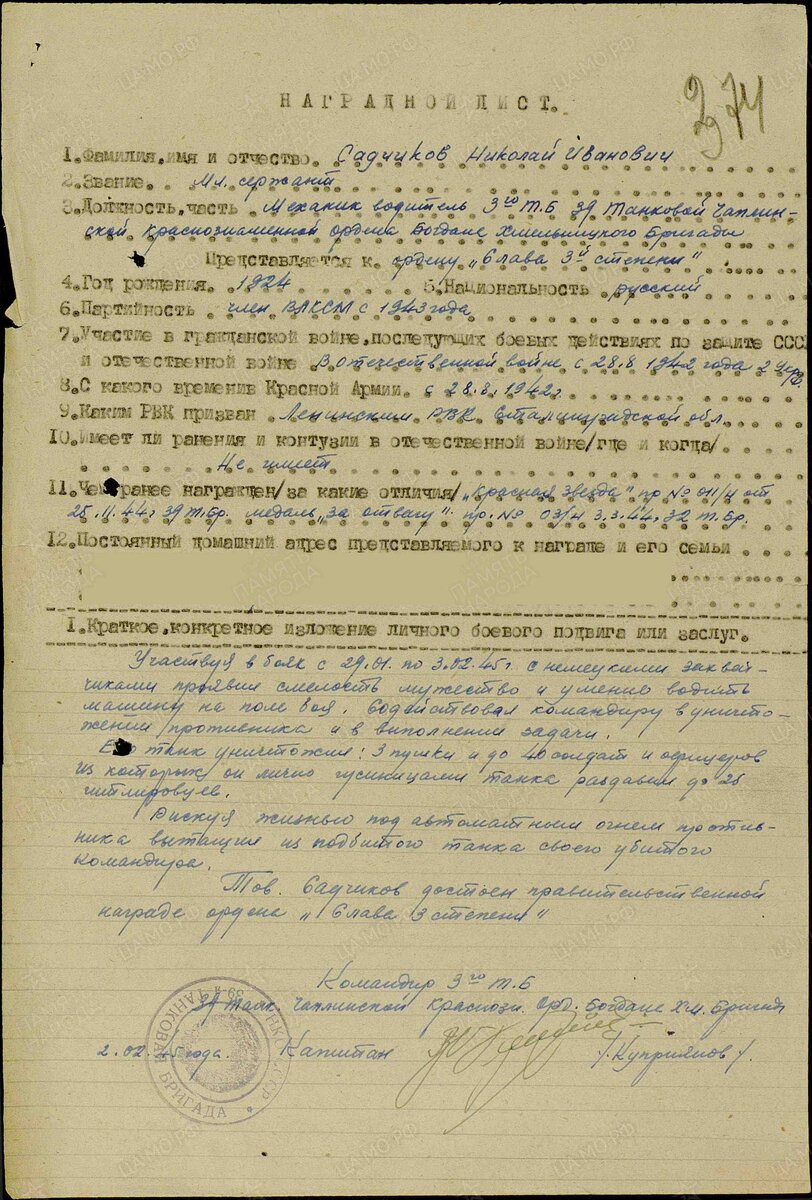 374
НАГРАДНОЙ ЛИСТ.
1.Фамилия,имя и отчество. Садчиков Николай Иванович
2.Звание. Мл. сержант
3.Должность,часть Механик водитель 3го Т.Б 39 Танковой Чаплин-
ской Краснознаменной ордена Богдана Хмельницкого Бригады
Представляется к. ордену „Слава 3й степени"
4.Год рождения. 1924 5.Национальность русский
6.Партийность член ВЛКСМ с 1943 года
7.Участие в гражданской войне,последующих боевых действиях по защите СССР
и отечественной войне В отечественной войне с 28.8 1942 года 2 Укр.Ф.
8.С какого времени в Красной Армии. с 28.8.1942г
9.Каким РВК призван Ленинским РВК Сталинградской обл.
10.Имеет ли ранения и контузии в отечественной войне/где и когда/
Не имеет
11.Чем ранее награжден/за какие отличия/ „Красная Звезда" пр № 011/н от
25.11.44г 39 Т.Бр. медаль „За отвагу" пр. № 03/н 3.3.44г 32 Т.Бр.
12.Постоянный домашний адрес представляемого к награде и его семьи
1.Краткое,конкретное изложение личного боевого подвига или заслуг.
Участвуя в боях с 29.01. по 3.02.45г. с немецкими захват-
чиками проявил смелость мужество и умение водить
машину на поле боя. Содействовал командиру в уничто-
жении противника и в выполнении задачи.
Его танк уничтожил: 3 пушки и до 40 солдат и офицеров
из которых он лично гусиницами танка раздавил до 25
гитлеровцев.
Рискуя жизнью под автоматным огнем против-
ника вытащил из подбитого танка своего убитого
командира.
Тов. Садчиков достоен правительственной
награде ордена „Слава 3 степени"
Командир 3го Т.Б
39 Танк Чаплинской Краснозн. Орд. Богдана Хм. Бригады
2.02.45 года. Капитан /.Куприянов/.
39-я ТАНКОВАЯ БРИГАДА